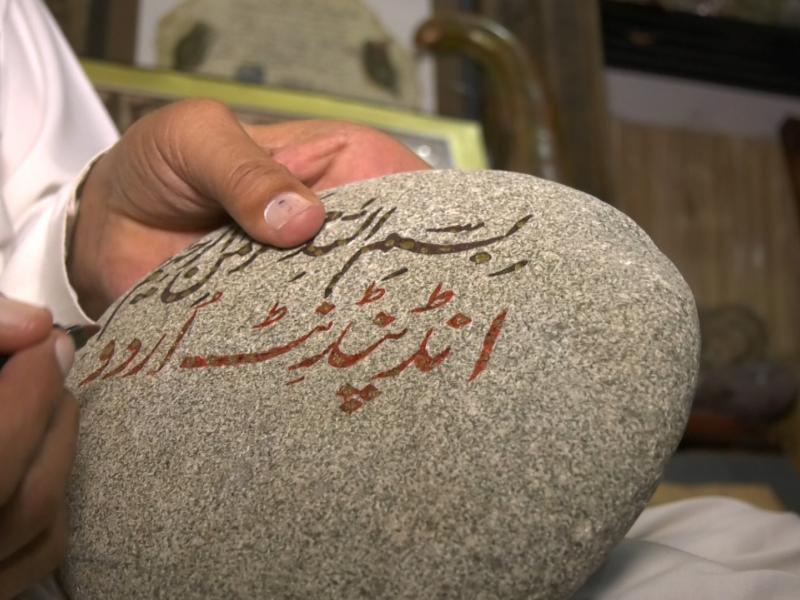 بسم اللہ الرحمن الرحیم
انڈپینڈنٹ اُردو